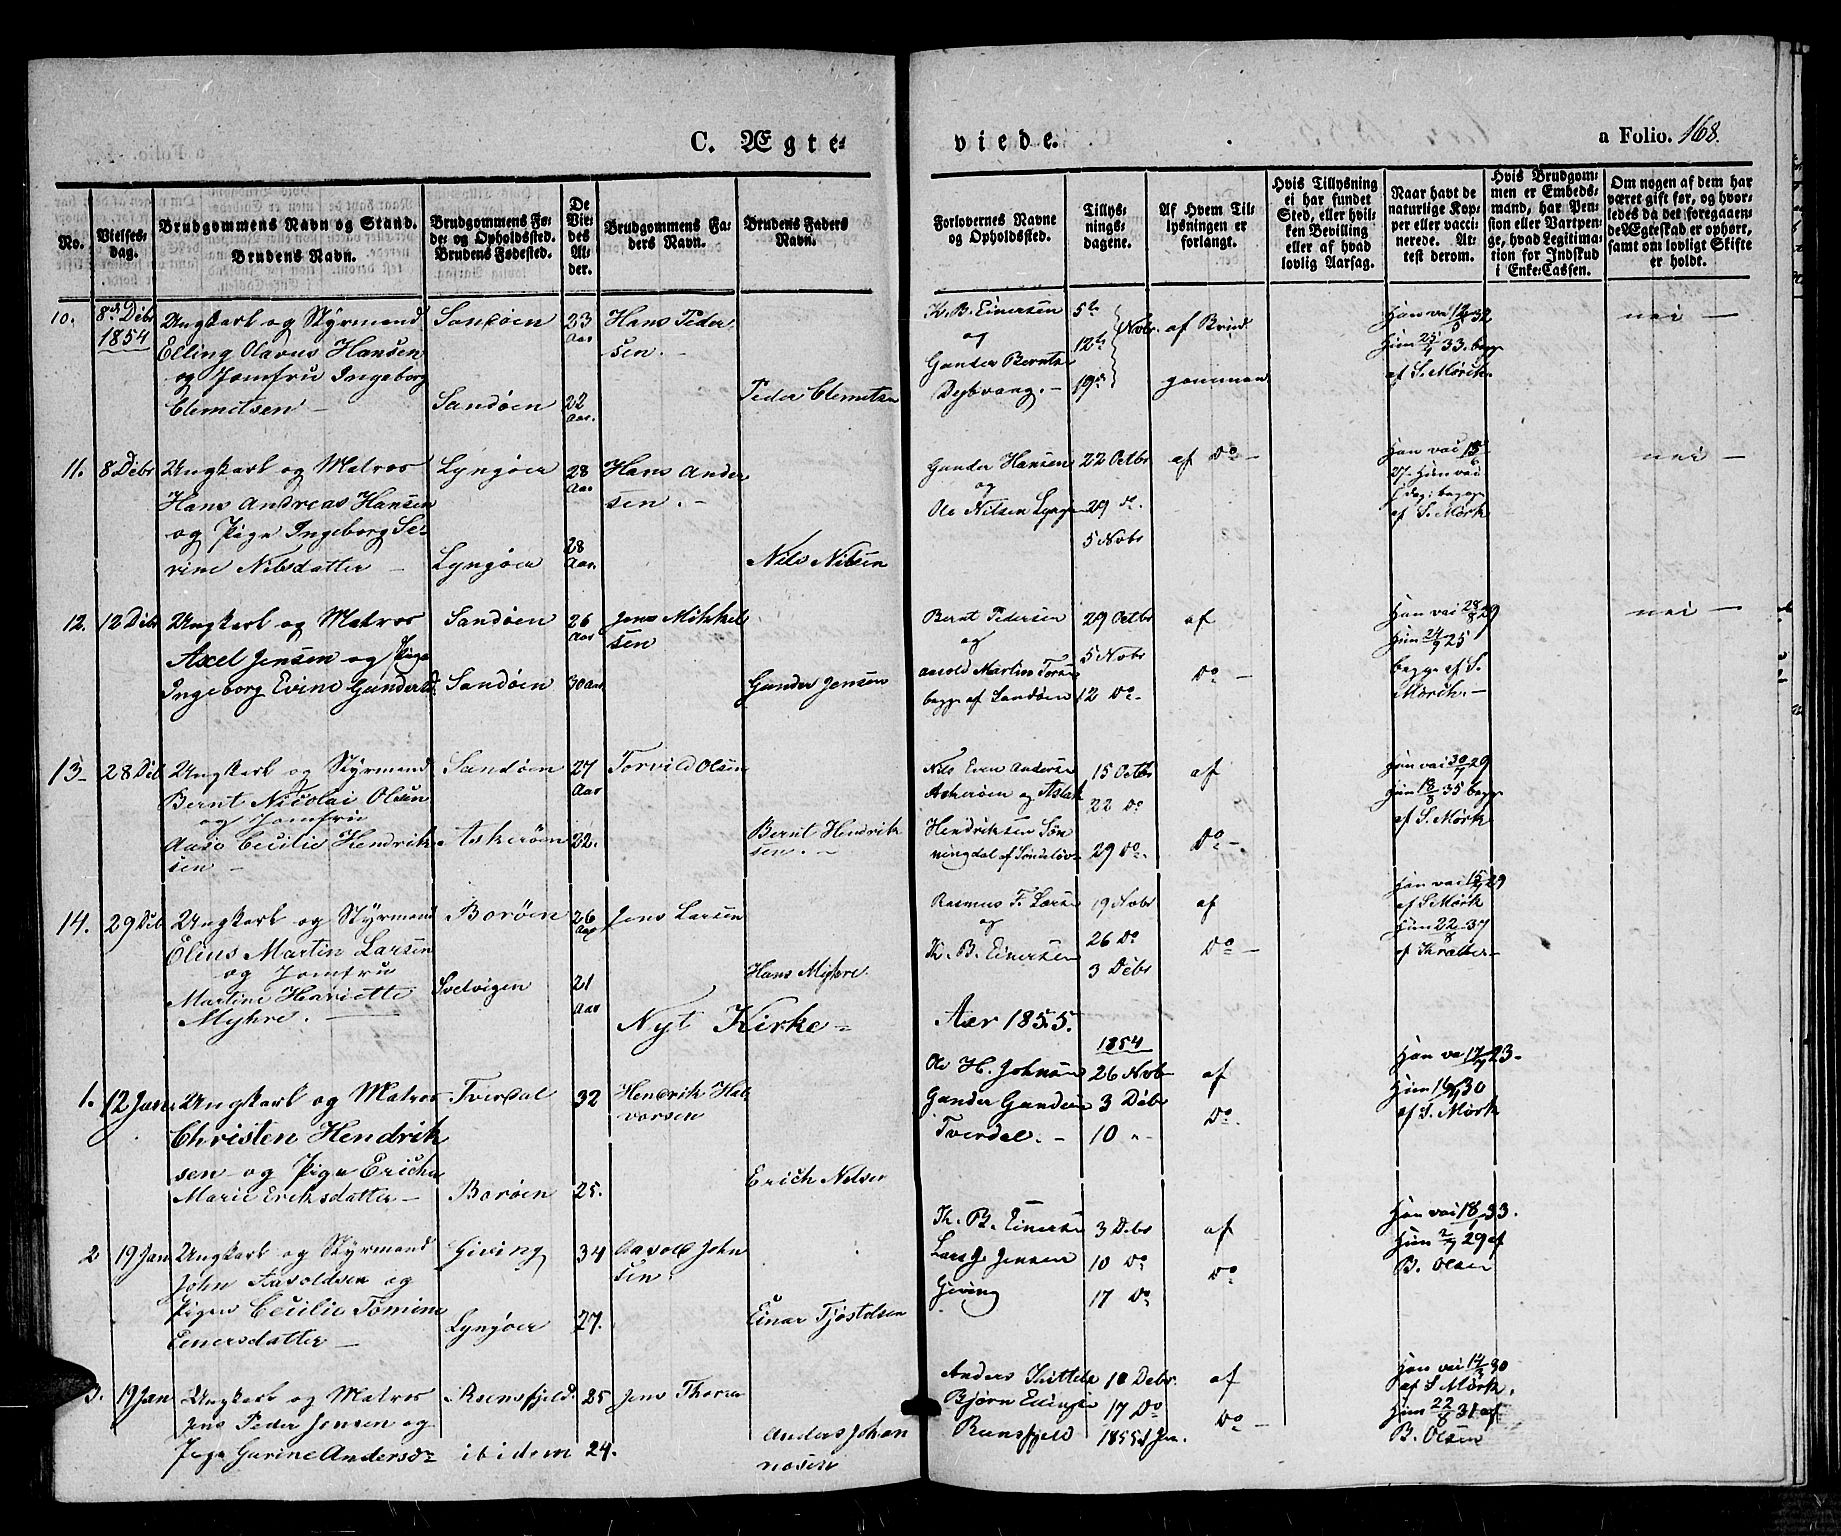 C. Ægte-
viede.
a Folio. 168.
No.
Vielses-
dag.
Brudgommens Navn og Stand.
Brudens Navn.
Brudgommens Fø-
de- og Opholdssted.
Brudens Fødested.
De
Vie-
des
Al-
der.
Brudgommens Fa-
ders Navn.
Brudens Faders
Navn.
Forlovernes Navne
og Opholdssted.
Tillys-
nings-
dagene.
Af Hvem Til-
lysningen er
forlangt.
Hvis Tillysning
ei har fundet
Sted, eller hvil-
ken Bevilling
eller af hvad
lovlig Aarsag.
Naar havt de
naturlige Kop-
per eller vacci-
nerede. At-
test derom.
Hvis Brudgom-
men er Embeds-
mand, har Pen-
sion eller Vartpen-
ge, hvad Legitima-
tion for Indskud
i Enke-Cassen.
Om nogen af dem har
været gift før, og hvor-
ledes da det foregaaen-
de Ægteskab er ophørt,
samt om lovligt Skifte
er holdt.
10.
8de Debr
1854
Ungkarl og Styrmand
Elling Olavus Hansen
og Jomfru Ingeborg
Clemetsen –
Sandøen
Sandøen
23
Aar
22
Aar.
Hans Peder
sen. –
Peder Clemetsn
Th. B. Einersen
og
Gunder Berntsn
Dybvaag. –
5te
12te
19de
Novbr.
af Brud
gommen
Han vac 32
Hun 25 33. begge
af S. Mørch.
nei –
11.
8 Debr
Ungkarl og Matros
Hans Andreas Hansen
og Pige Ingeborg Se-
vine Nilsdatter –
Lyngøer
Lyngøer
28
Aar
28
Aar.
Hans Ander
sen. –
Nils Nilsen
Gunder Hansen
og
Ole Nilsen Lyngø
22 Octbr
29 do.
5 Novbr
af Do –
Han vac
27. Hun vac
begge
af S. Mørch
nei –
12.
12 Debr
Ungkarl og Matros
Axel Jensen og Pige
Ingeborg Evine Gundersd.
Sandøen
Sandøen
26
Aar
30 Aar
Jens Mikkel
sen
Gunder Jensen
Bernt Pedersen
og
Aavold Martin Torsn
begge af Sandøen
29 Octbr
5 Novbr
12 Do –
af
Do –
Han vac 28/8 29
Hun 24/9 25
begge af S.
Mørch. –
nei –
13 –
28 Deb
Ungkarl og Styrmand
Bernt Nicolai Olsen
og Jomfru
Aase Cecilie Hendrik
sen –
Sandøen
Askerøen
27
Aar
22.
Torvild Olsen
Bernt Hendrik
sen. –
Nils Even Andersn
Askerøen og Aslak
Hendriksen Søn
ningdal af Søndeløv
15 Octbr
22 Do
29 Do.
af
Do –
Han vac 30/7 29
Hun 18/8 35 begge
af S. Mørch
14.
29 Deb
Ungkarl og Styrmand
Elius Martin Larsen
og Jomfru
Martine Henriette
Myhre. –
Borøen
Svelvigen
26
Aar
21
Aar
Jens Larsen
Hans Myhre
Rasmus F. Larsen
og
Th. B. Einersen
19 Novbr
26 Do
3 Debr
af
Do –
Han vac 15/7 29
af S. Mørch
Hun 22/8 37
af Kræfter –
Nyt Kirke –
Aar 1855.
1.
12 Janr
Ungkarl og Matros
Christen Hendrik
sen og Pige Ericha
Marie Eriksdatter –
Tverdal
Borøen
32
25.
Hendrik Hal
vorsen
Erich Nelsen
Ole H. Johnsen
Gunder Gundersn
Tverdal. –
1854
26 Novbr
3 Debr
10 " –
af
Do.
Han vac 17/7 23 –
Hun 30
af S. Mørch
2
19 Jan
Ungkarl og Styrmand
John Aavoldsen og
Pigen Cecilie Tomine
Einersdatter –
Giving
Lyngøer
34
27.
Aavold John
sen
Einar Tjøstelsen
Th. B. Einersen
Lars J. Jensen
Giving
3 Debr
10 Do
17 Do
af
Do
Han vac 18 33.
Hun 2/7 29 af
B. Olsen
3.
19 Jan
Ungkarl og Matros
Jens Peder Jensen og
Pige Gurine Andersdr
Reensfjeld
ibidem
25
24.
Jens Thorsen
Anders Johan
nesen
Anders Kittels
Bjørn Ellingsn
Reensfjeld
10 Debr.
17 Do
1855 1 Jan.
af
Do –
Han vac 14 30
af S. Mørch.
Hun 22/8 31 af
B. Olsen